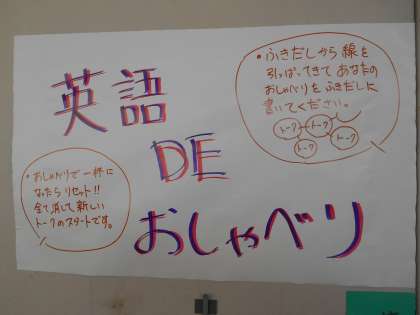 英語
DE
おしゃべり
・ふきだしから線を
引っぱってきてあなたの
おしゃべりをふきだしに
書いてください。
トーク トーク
トーク トーク
・おしゃべりで一杯に
なったらリセット!!
全て消して新しい
トークのスタートです。